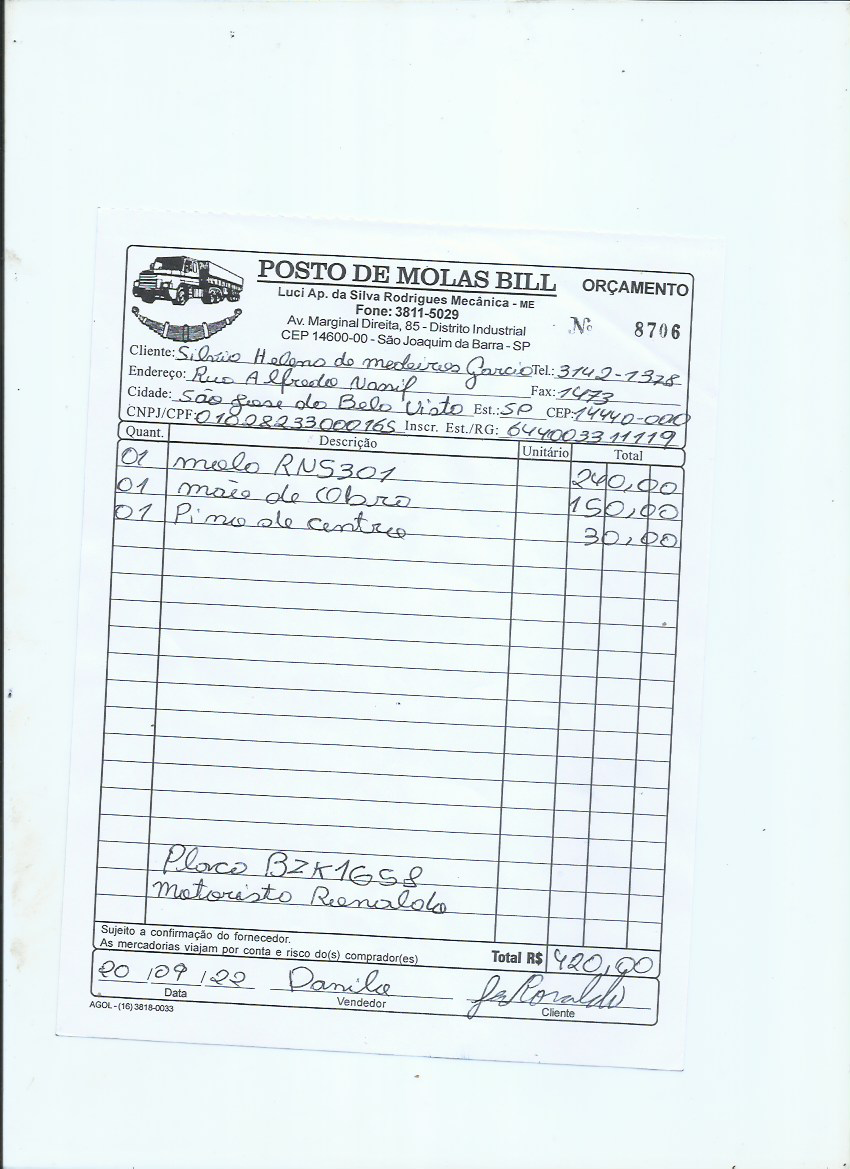 POSTO DE MOLAS BILL
ORÇAMENTO
Luci Ap. da Silva Rodrigues Mecânica - ME
Fone: 3811-5029
Av. Marginal Direita, 85 - Distrito Industrial
CEP 14600-00 - São Joaquim da Barra - SP
Nº 8706
Cliente: Silvio Heleno de medeiros Garcia Tel.: 3142-1328
Endereço: Rua Alfredo Fax: 1473
Cidade: São Jose do Bela Vista Est.: SP CEP: 14440-000
CNPJ/CPF: 01828233000165 Inscr. Est./RG: 644003311119
Quant. Descrição Unitário Total
01 mola RNS301 240,00
01 mão de Obra 150,00
01 Pino de centro 30,00
Placa BZK1G58
Motorista Renaldo
Sujeito a confirmação do fornecedor.
As mercadorias viajam por conta e risco do(s) comprador(es)
Total R$ 420,00
20/09/22 Danilo
Data Vendedor Cliente
AGOL - (16) 3818-0033